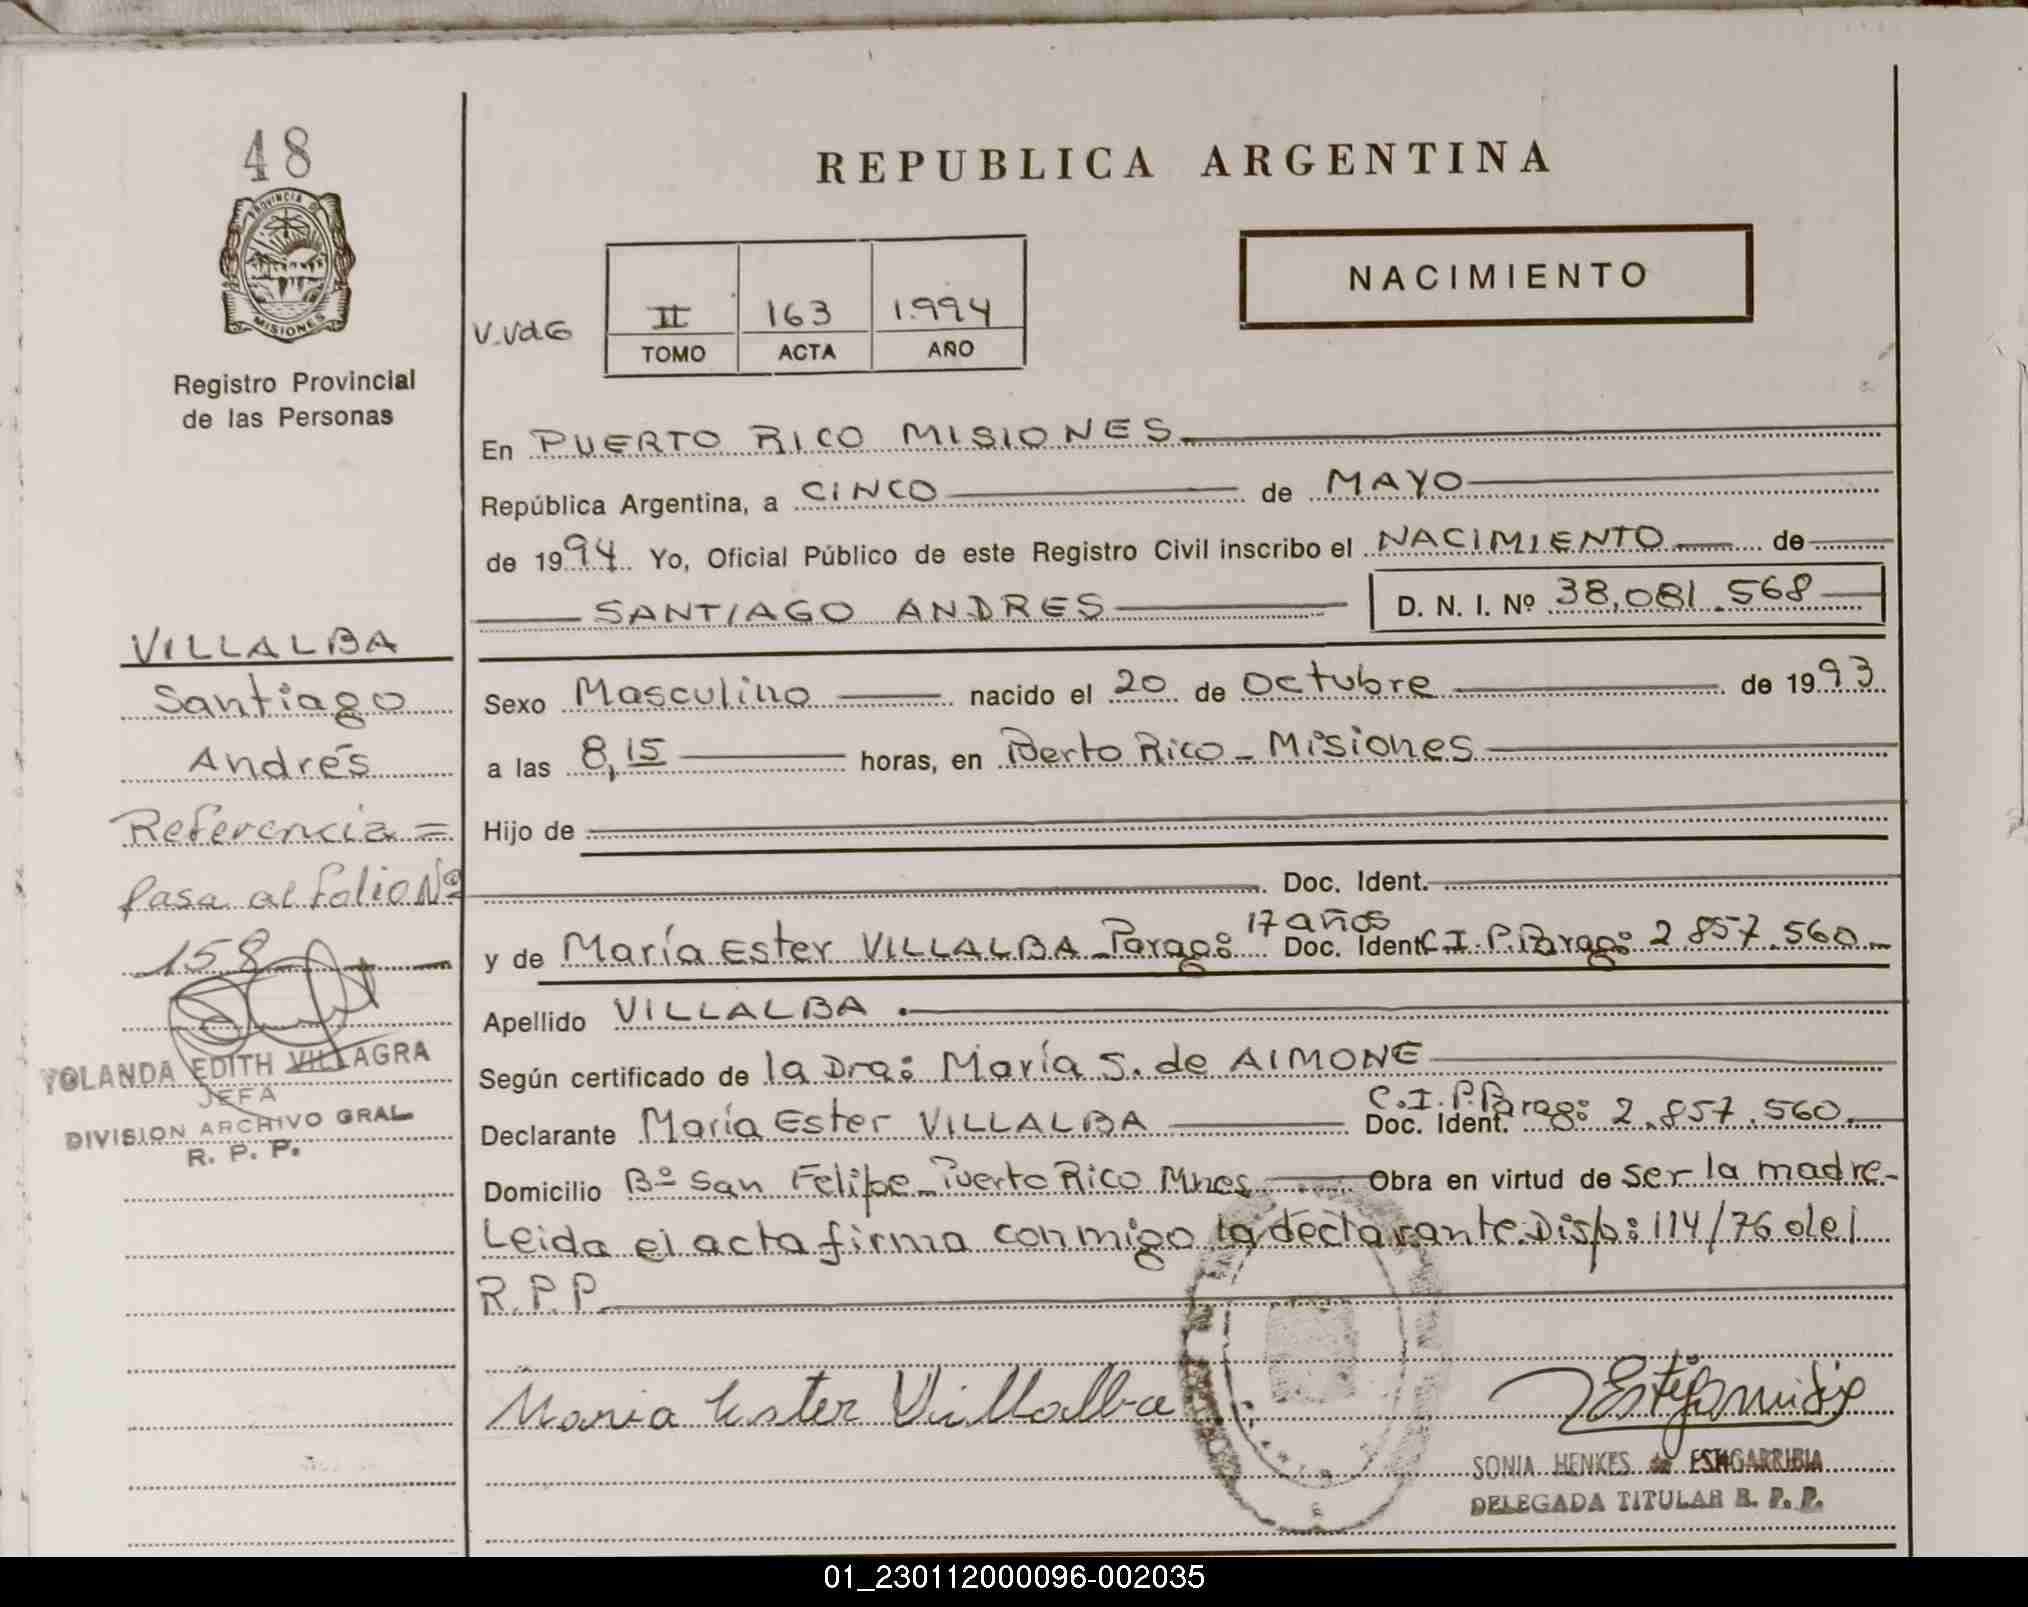 48
PROVINCIA DE
MISIONES
Registro Provincial
de las Personas
VILLALBA
Santiago
Andrés
Referencia =
Pasa al folio Nº
158
YOLANDA EDITH VILLAGRA
JEFA
DIVISION ARCHIVO GRAL
R. P. P.
REPUBLICA ARGENTINA
NACIMIENTO
V.VdG
II 163 1.994
TOMO ACTA AÑO
En PUERTO RICO MISIONES
República Argentina, a CINCO de MAYO
de 1994. Yo, Oficial Público de este Registro Civil inscribo el NACIMIENTO de
SANTIAGO ANDRES D. N. I. Nº 38.081.568
Sexo Masculino nacido el 20 de Octubre de 1993
a las 8,15 horas, en Puerto Rico - Misiones
Hijo de
Doc. Ident.
y de María Ester VILLALBA - Parag: 17 años Doc. Ident. C.I.P.Parag: 2.857.560
Apellido VILLALBA.
Según certificado de la Dra: María S. de AIMONE
Declarante María Ester VILLALBA Doc. Ident. C.I.P.Parag: 2.857.560.
Domicilio Bº San Felipe - Puerto Rico Mnes Obra en virtud de ser la madre-
Leida el acta firma conmigo la declarante. Disp: 114/76 del
R.P.P.
Maria Ester Villalba
SONIA HENKES de ESTIGARRIBIA
DELEGADA TITULAR R. P. P.
01_230112000096-002035